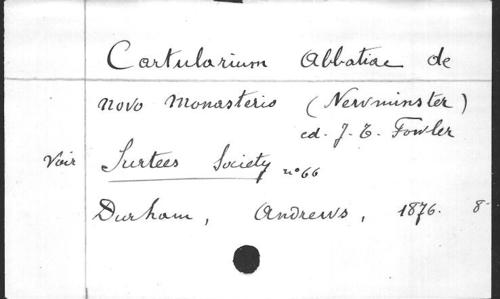 Cartularium Abbatiae de
Novo Monasterio (Newminster)
ed. J. T. Fowler
Voir Surtees Society n° 66
Durham, Andrews, 1876. 8-